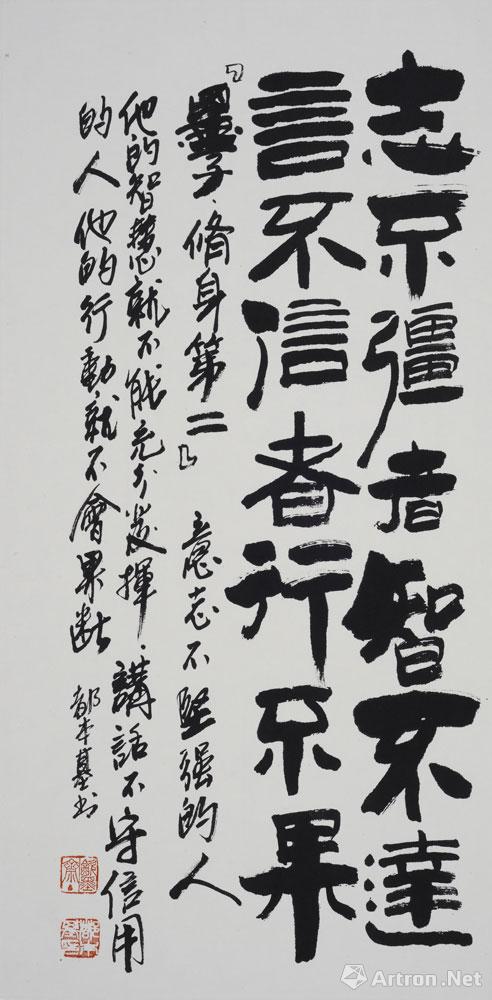 志不彊者智不達
言不信者行不果
『墨子·脩身第二』 意志不堅强的人
他的智慧就不能充分发揮、講話不守信用
的人他的行動就不會果断 都本基书
Artron.Net